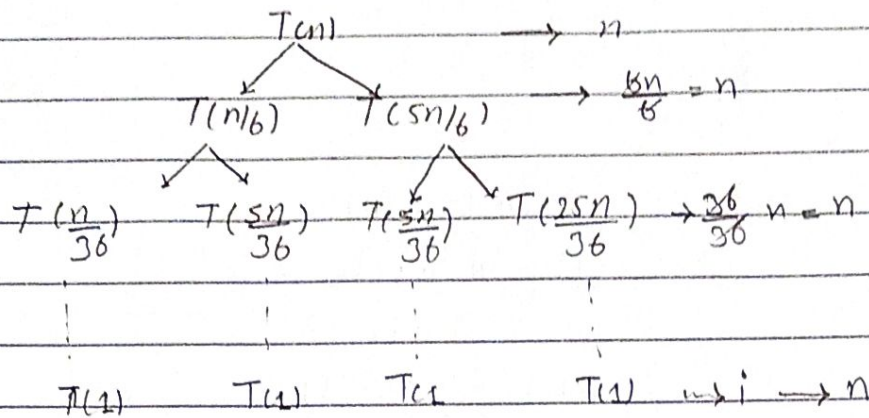 T(n) → n
T(n/6) T(5n/6) → 6n/6 = n
T(n/36) T(5n/36) T(5n/36) T(25n/36) → 36/36 n = n
T(1) T(1) T(1 T(1) → i → n